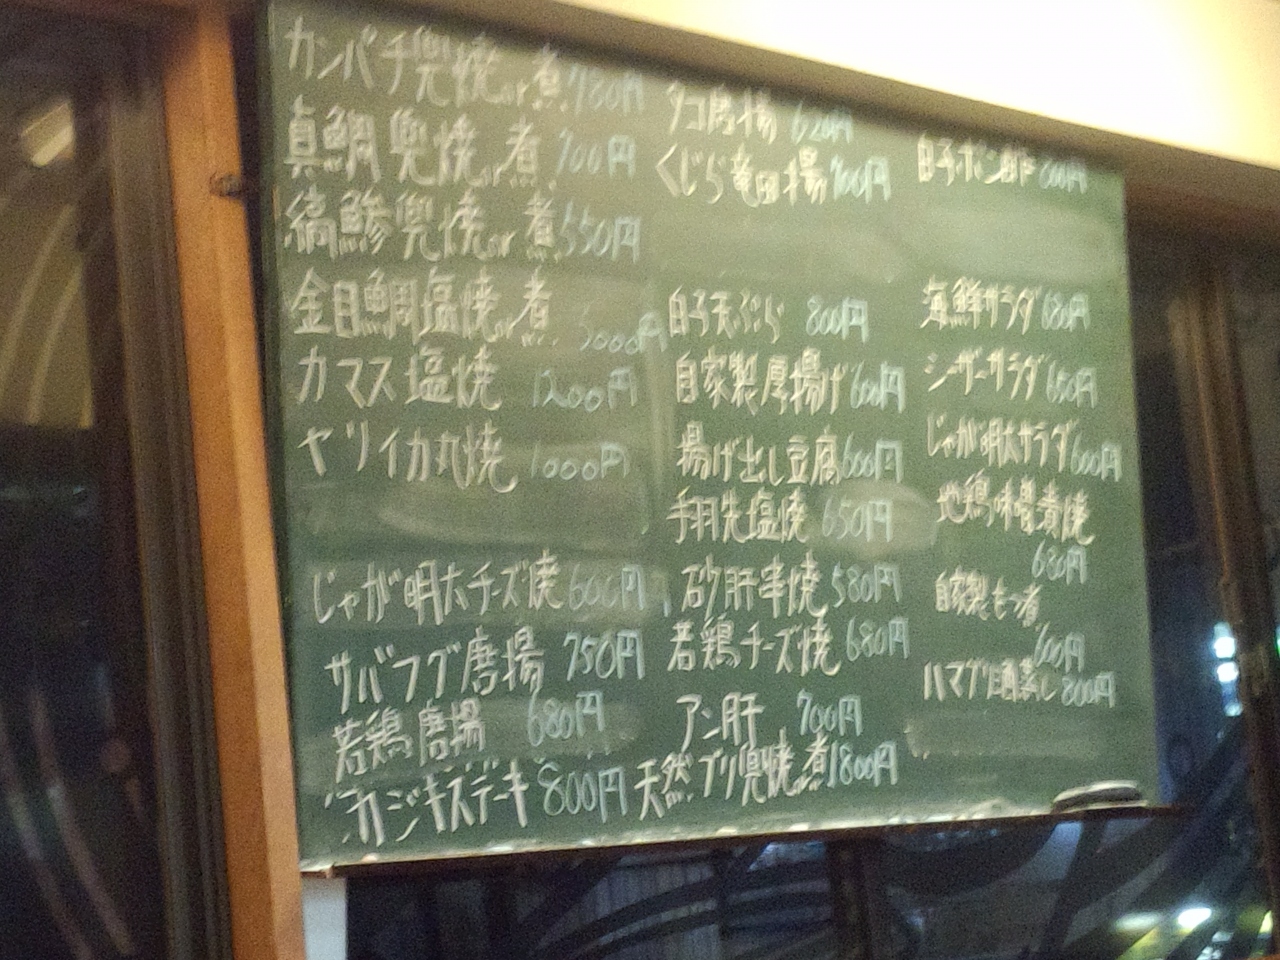 カンパチ兜焼or煮 780円
真鯛兜焼or煮 700円
縞鯵兜焼or煮 550円
金目鯛塩焼or煮 5000円
カマス塩焼 1200円
ヤリイカ丸焼 1000円
じゃが明太チーズ焼 600円
サバフグ唐揚 750円
若鶏唐揚 680円
カジキステーキ 800円
タコ唐揚 620円
くじら竜田揚 900円
白子天ぷら 800円
自家製厚揚げ 600円
揚げ出し豆腐 600円
手羽先塩焼 650円
砂肝串焼 580円
若鶏チーズ焼 680円
アン肝 700円
天然ブリ兜焼or煮 1800円
白子ポン酢 800円
海鮮サラダ 680円
シーザーサラダ 650円
じゃが明太サラダ 600円
地鶏味噌煮焼
680円
自家製もつ煮
600円
ハマグリ酒蒸し 800円